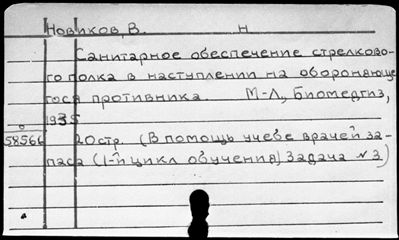 Новиков, В. Н
Санитарное обеспечение стрелково-
го полка в наступлении на обороняюще
гося противника. М-Л, Биомедгиз,
1935
58566 20стр. (В помощь учебе врачей за-
паса (1-й цикл обучения) Задача №3)